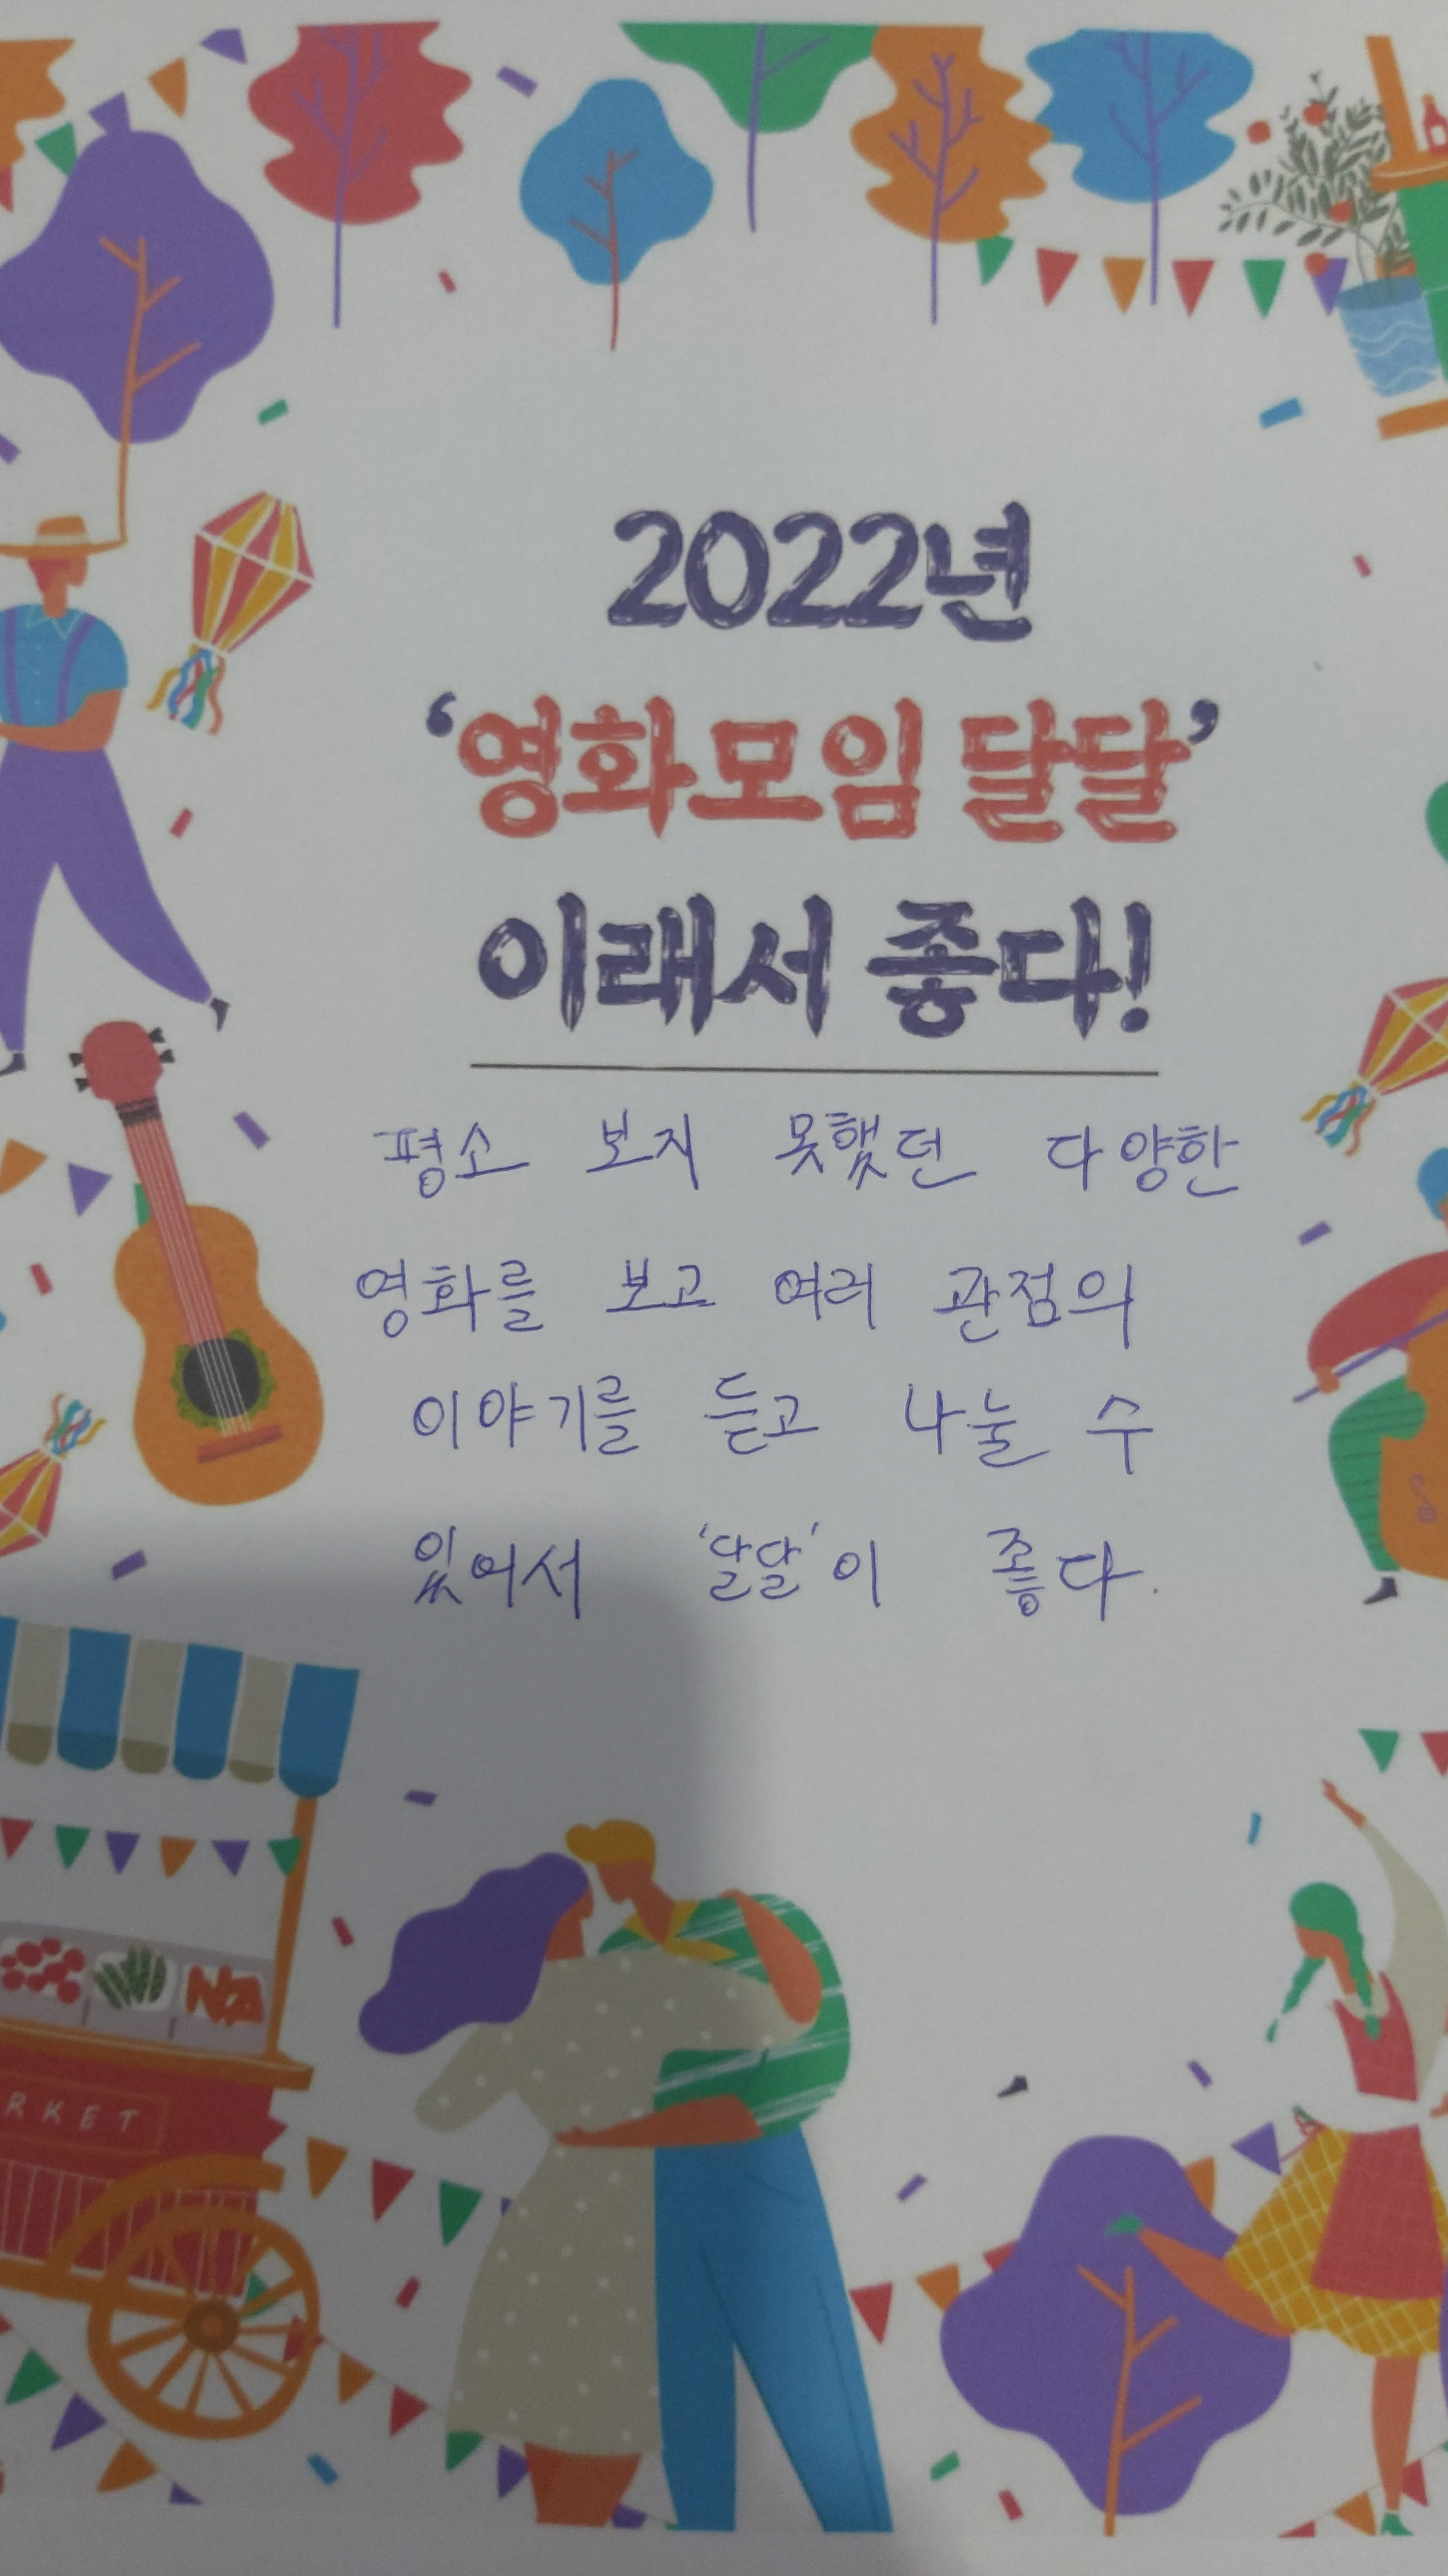 2022년
‘영화모임 달달’
이래서 좋다!
평소 보지 못했던 다양한
영화를 보고 여러 관점의
이야기를 듣고 나눌 수
있어서 '달달'이 좋다.
RKET